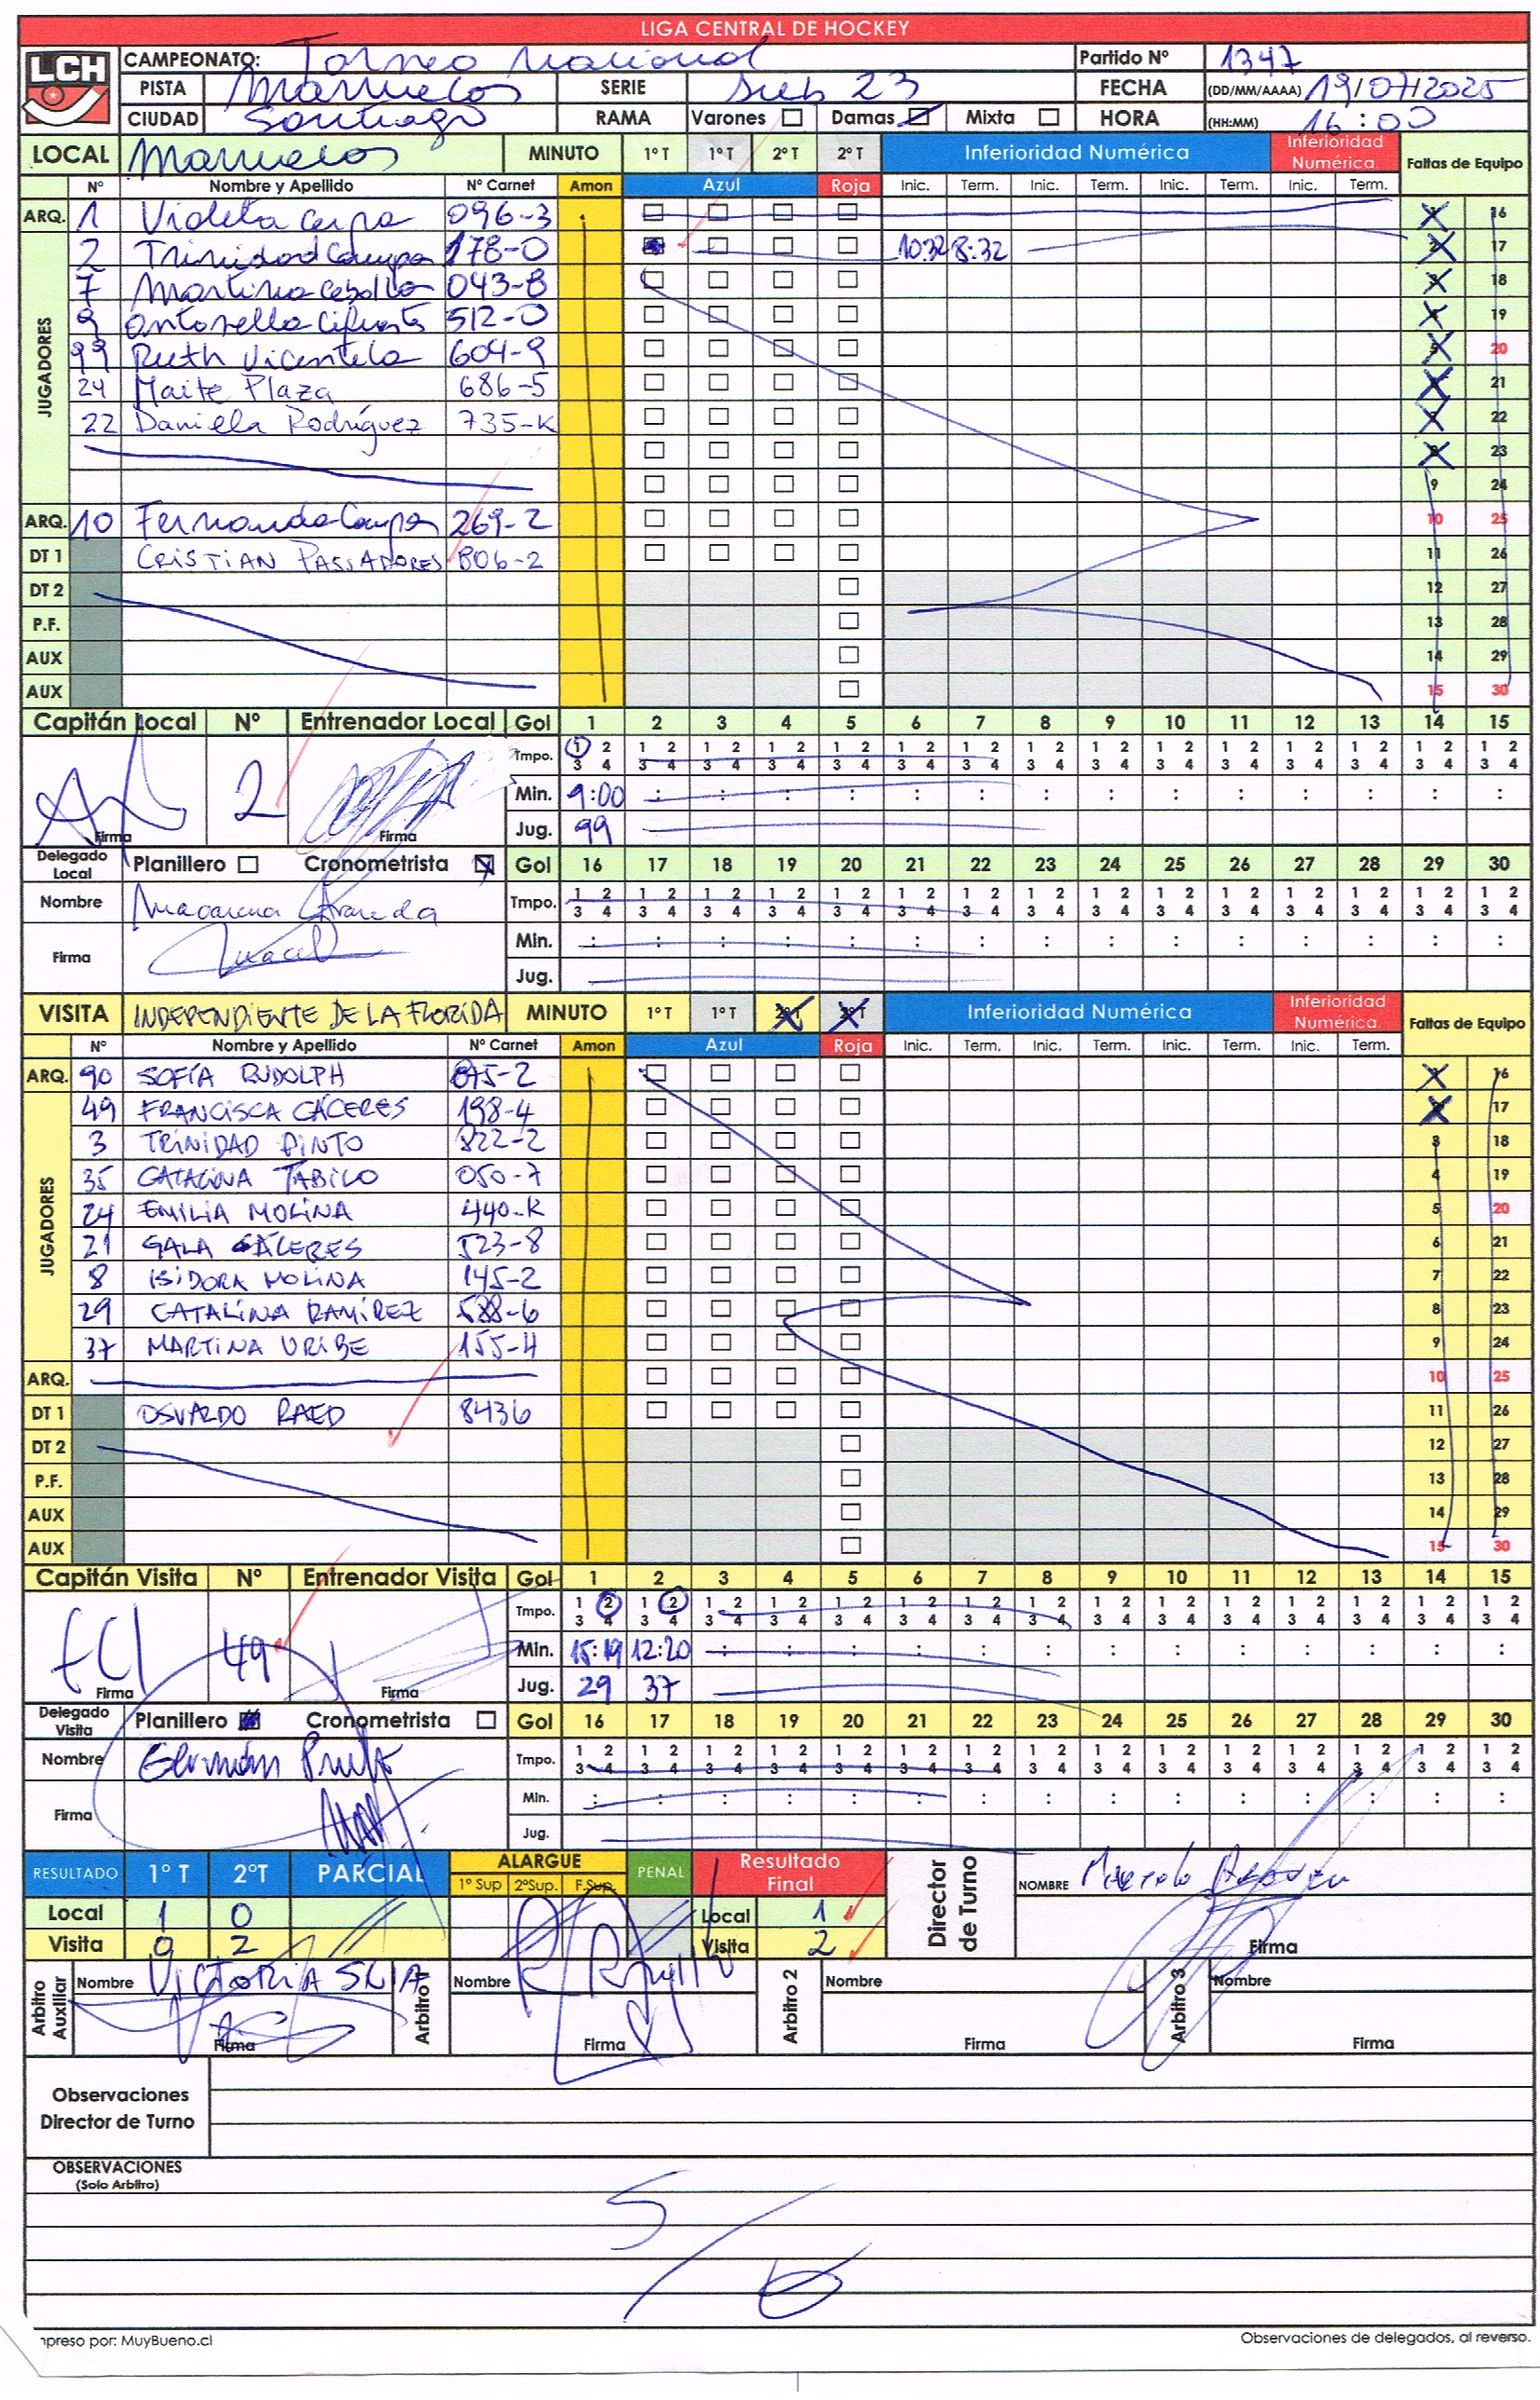 LIGA CENTRAL DE HOCKEY
LCH
CAMPEONATO: Torneo Nacional Partido Nº 1347
PISTA Marruecos SERIE Sub 23 FECHA (DD/MM/AAAA) 19/07/2025
CIUDAD Santiago RAMA Varones Damas Mixta HORA (HH:MM) 16:00
LOCAL Marruecos MINUTO 1º T 1º T 2º T 2º T Inferioridad Numérica Inferioridad Numérica Faltas de Equipo
Nº Nombre y Apellido Nº Carnet Amon Azul Roja Inic. Term. Inic. Term. Inic. Term. Inic. Term.
ARQ. 1 Violeta Cerpa 096-3 1 16
JUGADORES
2 Trinidad Campos 178-0 10:32 8:32 2 17
7 Martina Ceballo 043-8 3 18
9 Antonella Cifuentes 512-0 4 19
99 Ruth Vicentela 604-9 5 20
24 Maite Plaza 686-5 6 21
22 Daniella Rodríguez 735-K 7 22
8 23
9 24
ARQ. 10 Fernanda Campos 269-2 10 25
DT 1 CRISTIAN PASSADORES 806-2 11 26
DT 2 12 27
P.F. 13 28
AUX 14 29
AUX 15 30
Capitán Local Nº Entrenador Local Gol 1 2 3 4 5 6 7 8 9 10 11 12 13 14 15
Tmpo. 1 2 1 2 1 2 1 2 1 2 1 2 1 2 1 2 1 2 1 2 1 2 1 2 1 2 1 2 1 2
3 4 3 4 3 4 3 4 3 4 3 4 3 4 3 4 3 4 3 4 3 4 3 4 3 4 3 4 3 4
2 Min. 9:00 : : : : : : : : : : : : : :
Firma Firma Jug. 99
Delegado Local Planillero Cronometrista Gol 16 17 18 19 20 21 22 23 24 25 26 27 28 29 30
Nombre Macarena Araneda Tmpo. 1 2 1 2 1 2 1 2 1 2 1 2 1 2 1 2 1 2 1 2 1 2 1 2 1 2 1 2 1 2
3 4 3 4 3 4 3 4 3 4 3 4 3 4 3 4 3 4 3 4 3 4 3 4 3 4 3 4 3 4
Firma Min. : : : : : : : : : : : : : : :
Jug.
VISITA INDEPENDIENTE DE LA FLORIDA MINUTO 1º T 1º T 2º T 2º T Inferioridad Numérica Inferioridad Numérica. Faltas de Equipo
Nº Nombre y Apellido Nº Carnet Amon Azul Roja Inic. Term. Inic. Term. Inic. Term. Inic. Term.
ARQ. 90 SOFÍA RUDOLPH 875-2 1 16
JUGADORES
49 FRANCISCA CÁCERES 198-4 2 17
3 TRINIDAD PINTO 822-2 3 18
35 CATALINA TABILO 050-7 4 19
24 EMILIA MOLINA 440-K 5 20
21 GALA CÁCERES 523-8 6 21
8 ISIDORA MOLINA 145-2 7 22
29 CATALINA RAMÍREZ 588-6 8 23
37 MARTINA URIBE 155-4 9 24
ARQ. 10 25
DT 1 OSVALDO RAED 8436 11 26
DT 2 12 27
P.F. 13 28
AUX 14 29
AUX 15 30
Capitán Visita Nº Entrenador Visita Gol 1 2 3 4 5 6 7 8 9 10 11 12 13 14 15
Tmpo. 1 2 1 2 1 2 1 2 1 2 1 2 1 2 1 2 1 2 1 2 1 2 1 2 1 2 1 2 1 2
3 4 3 4 3 4 3 4 3 4 3 4 3 4 3 4 3 4 3 4 3 4 3 4 3 4 3 4 3 4
49 Min. 15:19 12:20 : : : : : : : : : : : : :
Firma Firma Jug. 29 37
Delegado Visita Planillero Cronometrista Gol 16 17 18 19 20 21 22 23 24 25 26 27 28 29 30
Nombre Germán Tmpo. 1 2 1 2 1 2 1 2 1 2 1 2 1 2 1 2 1 2 1 2 1 2 1 2 1 2 1 2 1 2
3 4 3 4 3 4 3 4 3 4 3 4 3 4 3 4 3 4 3 4 3 4 3 4 3 4 3 4 3 4
Firma Min. : : : : : : : : : : : : : : :
Jug.
RESULTADO 1º T 2ºT PARCIAL ALARGUE 1º Sup 2ºSup. F.Sup. PENAL Resultado Final Director de Turno NOMBRE Marcelo
Local 1 0 Local 1
Visita 0 2 Visita 2 Firma
Arbitro Auxiliar Nombre VICTORIA Arbitro 1 Nombre Arbitro 2 Nombre Arbitro 3 Nombre
Firma Firma Firma Firma
Observaciones
Director de Turno
OBSERVACIONES
(Solo Arbitro)
S/O
npreso por: MuyBueno.cl Observaciones de delegados, al reverso.